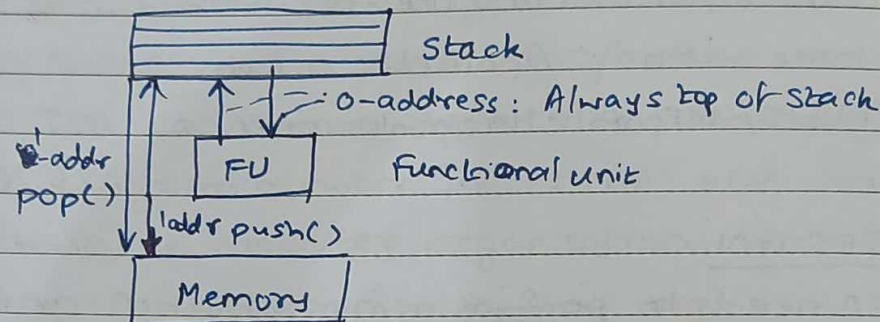 Stack
0-address : Always top of stack
1-addr
pop()
FU
Functional unit
1addr push()
Memory